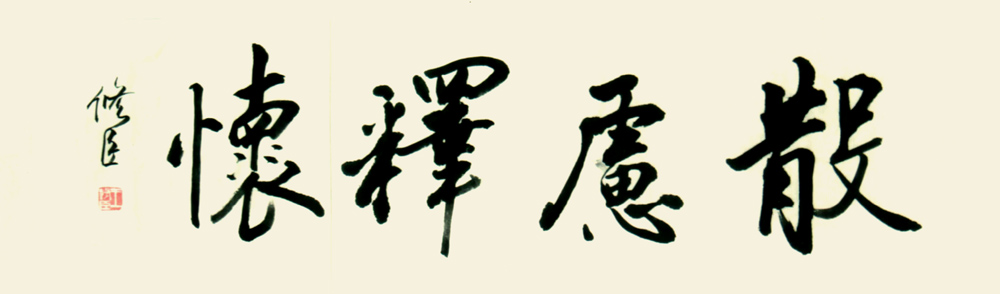 散慮釋懷
修臣